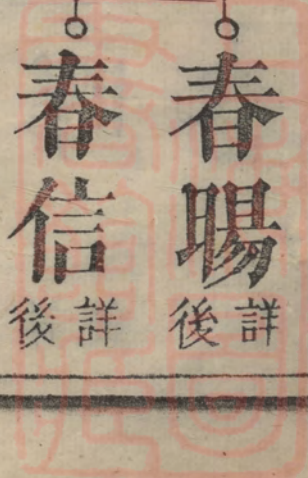 春暘
詳後
春信
詳後